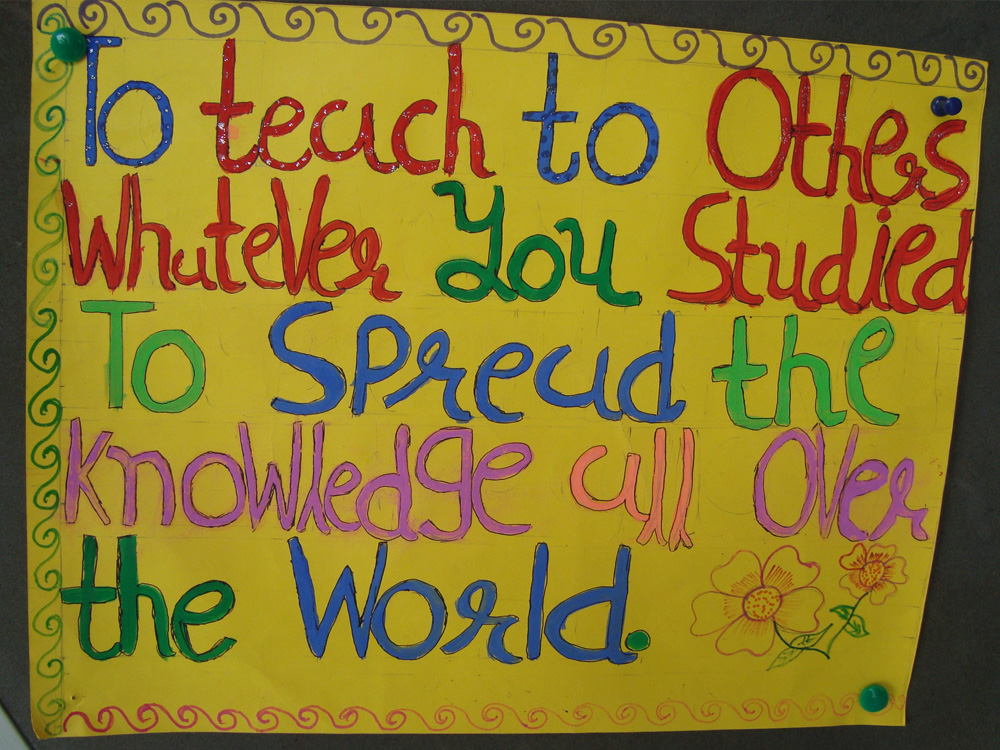 To teach to Others
Whatever You Studied
To Spread the
Knowledge all Over
the World.